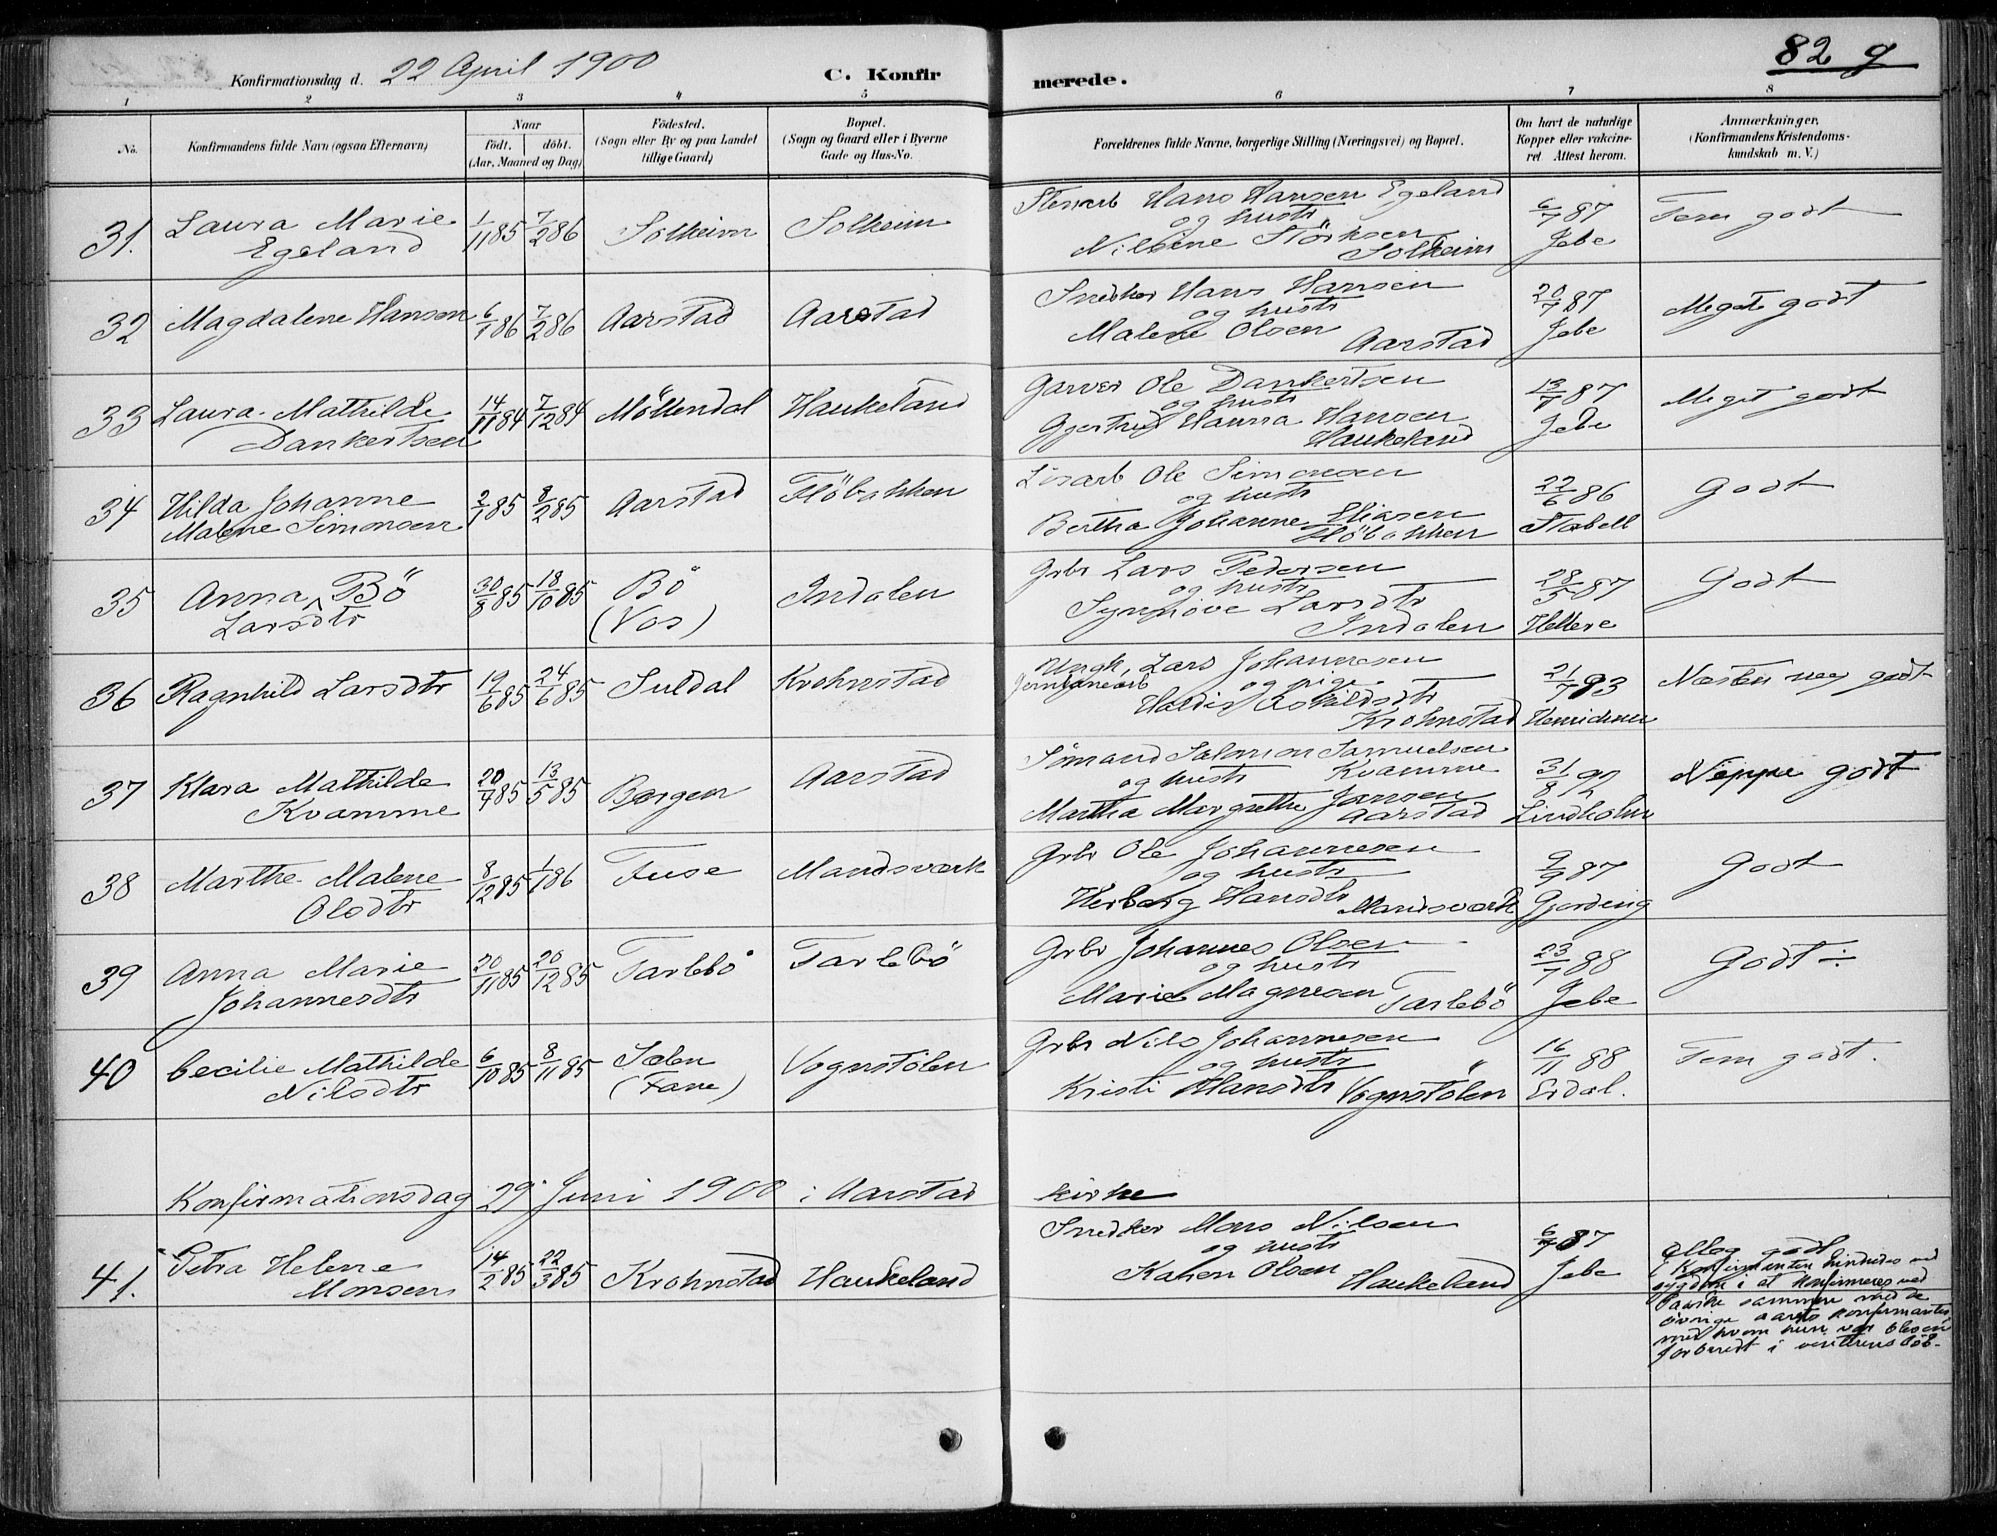 82 g
Konfirmationsdag d. 22 April 1900 C. Konfirmerede.
1 2 3 4 5 6 7 8
No. Konfirmandens fulde Navn (ogsaa Efternavn) Naar födt. döbt. (Aar, Maaned og Dag) Födested. (Sogn eller By og paa Landet tillige Gaard) Bopæl. (Sogn og Gaard eller i Byerne Gade og Hus-No. Forældrenes fulde Navne, borgerlige Stilling (Næringsvei) og Bopæl. Om havt de naturlige Kopper eller vakcineret Attest herom. Anmærkninger, (Konfirmandens Kristendomskundskab m. V.)
31. Laura Marie Egeland 1/11 85 7/2 86 Solheim Solheim Stenarb Hans Hansen Egeland
og hustr
Störksen Solheim 6/7 87 Jebe Tem godt
32 Magdalene Hansen 6/1 86 7/2 86 Aarstad Aarstad Snedker Hans Hansen
og hustr
Malene Olsen Aarstad 20/7 87 Jebe Meget godt
33 Laura Mathilde Dankertsen 14/11 84 7/12 84 Möllendal Haukeland Garver Ole Dankertsen
og hustr
Gjertrud Hanna Hansen Haukeland 13/7 87 Jebe Meget godt
34 Hilda Johanne Malene Simonsen 2/1 85 8/2 85 Aarstad Flöbakken Lösarb Ole Simonsen
og hustr
Bertha Johanne Eliasen Flöbakken 22/6 86 Stabell Godt
35 Anna Larsdtr Bö 30/8 85 18/10 85 Bö (Vos) Indalen Grbr Lars Pedersen
og hustr
Synnöve Larsdtr Indalen 28/5 87 Godt
36 Ragnhild Larsdtr 19/6 85 24/6 85 Suldal Krohnstad Ungk. Lars Johannesen
Jernbanearb og pige
Haldis Askildsdtr Krohnstad 21/7 93 Næsten meg godt
37 Klara Mathilde Kvamme 20/4 85 13/5 85 Bergen Aarstad Sömand Salomon Samuelsen Kvamme
og hustr
Martha Margrethe Jansen Aarstad 31/8 92 Lindholm Neppe godt
38 Marthe Malene Olsdtr 8/12 85 1/1 86 Fuse Mandsværk Grbr Ole Johannesen
og hustr
Herborg Hansdtr Mandsværk 9/9 87 Gjerding Godt
39 Anna Marie Johannesdtr 20/11 85 20/12 85 Tarlebö Tarlebö Grbr Johannes Olsen
og hustr
Marie Magnesen Tarlebö 23/7 88 Jebe Godt ÷
40 Cecilie Mathilde Nilsdtr 6/10 85 8/11 85 Sælen (Fane) Vognstölen Grbr Nils Johannesen
og hustr
Kristi Hansdtr Vognstölen 16/11 88 Erdal. Tem godt.
Konfirmationsdag 29 Juni 1900 i Aarstad kirke
41. Petra Helene Monsen 14/2 85 22/3 85 Krohnstad Haukeland Snedker Mons Nilsen
og hustr
Karen Olsen Haukeland 6/7 87 Jebe Meg godt
Konfirmanten hindredes ved
sygdom i at konfirmeres ved
Paaske sammen med de
övrige aarets konfirmanter
med hvem hun var bleven
forberedt i vinterens löb.